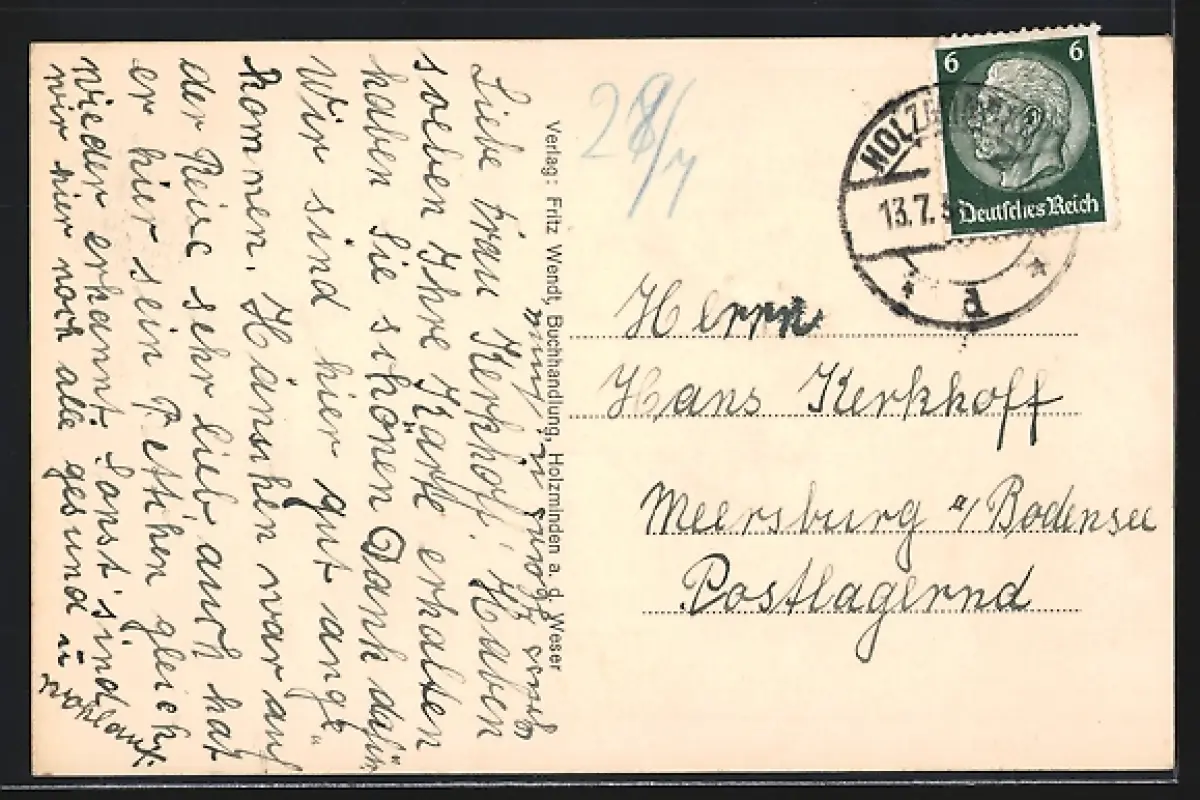 Liebe Frau Kerkhoff! Haben
soeben Ihre Karte erhalten
haben Sie schönen Dank dafür
Wir sind hier gut ange"
kommen. Hänschen war auf
der Reise sehr lieb, auch hat
er hier sein Bettchen gleich
wieder erkannt. Sonst sind
wir hier noch alle gesund u
wohlauf.
Verlag: Fritz Wendt, Buchhandlung, Holzminden a. d. Weser
28/7
6 6
Deutsches Reich
HOLZMINDEN
13.7.3
d
Herrn
Hans Kerkhoff
Meersburg a/Bodensee
Postlagernd